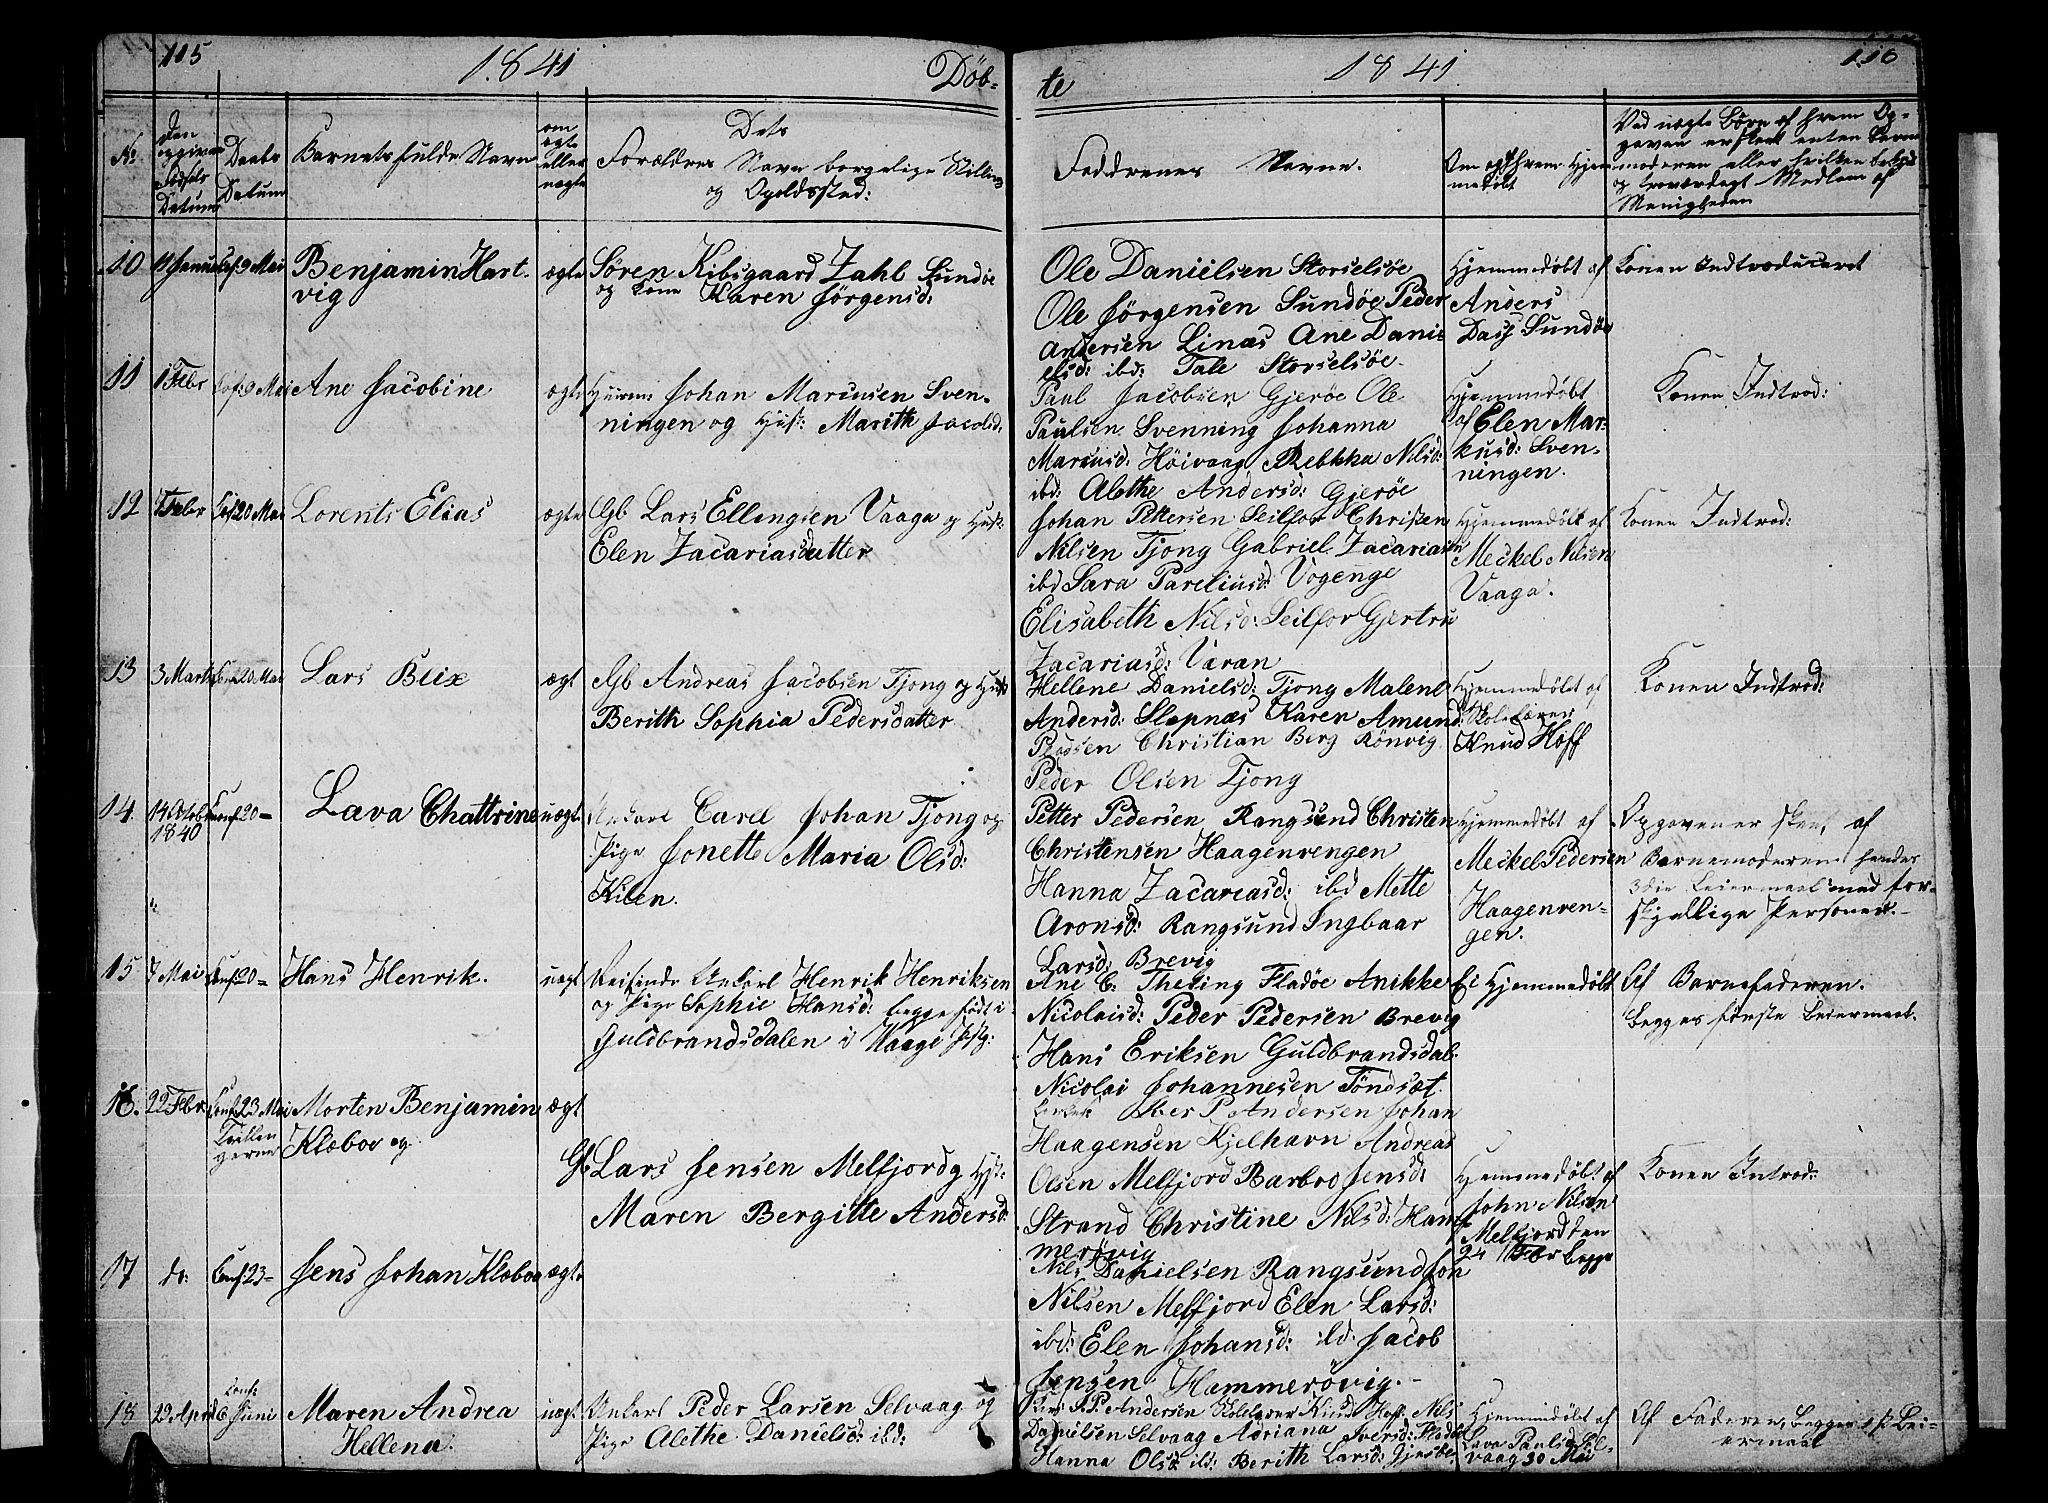 115
1841
Døb-
te
1841
116
No
Den opgivne Fødsels Datum
Daabs Datum
Barnets fulde Navn
om ægte eller uægte
Dets
Forældres Navn borgelige Stilling
og Opoldssted:
Faddrenes Navne.
Om og af hvem Hjemmedøbt
Ved uægte Børn af hvem Op-
given er skeet enten Barne
moderen eller hvilken bekjendt
og troværdigt Medlem af
Menigheden
10
Conf 9 Mai
Benjamin Hart-
vig
ægte
Søren Kibsgaard Zahl Sundøe
og Kone Karen Jørgensd:
Ole Danielsen Storselsøe
Ole Jørgensen Sundøe Peder
Andersen Linæs Ane Dani-
elsd: ibd: Tale Storselsøe
Hjemmedøbt af
Anders
Dass Sundøe
Konen Indtroduceret
11
1 Febr
Conf 9 Mai
Ane Jacobine
ægte
Huusm Johan Marcusen Sven-
ningen og Hust: Marith Jacobsd.
Paul Jacobsen Gjerøe Ole
Paulsen Svenning Johanna
Marcusd: Höivaag Rebkka Nilsd:
ibd: Alethe Andersd: Gjerøe
Hjemmedøbt
af Elen Mar-
kusd: Sven-
ningen.
Konen Indtrod:
12
7 Febr
Conf 20 Mai
Lorents Elias
ægte
Gb Lars Ellingsen Vaaga og Hust:
Elen Zacariasdatter
Johan Pettersen Seilfor Christen
Nilsen Tjong Gabriel Zacariasen
ibd Sara Pareliusd: Vogenge
Elisabeth Nilsd: Seilfor Gjertru
Zacariasd: Varan
Hjemmedøbt af
Meckel Nilsen
Vaaga.
Konen Indtrod:
13
3 Marts
Conf 20 Mai
Lars Blix
ægt
Gb Andreas Jacobsen Tjong og Hust
Berith Sophia Pedersdatter
Hellene Danielsd: Tjong Malene
Andersd: Slapnæs Karen Amund:
Christian Berg Rönvig
Peder Olsen Tjong
Hjemmedøbt af
Skolelærer
Knud Hoff
Konen Indtrod:
14.
14 Octobr
1840
Conf 20 =
Lava Chattrine
uægt.
Unkarl Carel Johan Tjong og
Pige Jonette Maria Olsd:
Kilen.
Petter Pedersen Rangsund Christen
Christensen Haagenvengen
Hanna Zacariasd: ibd Mette
Aronsd: Rangsund Ingbaar
Larsd: Brevig
Hjemmedøbt af
Meckel Pedersen
Haagenven-
gen.
Opgaven er skeet af
Barnemoderen hendes
3die Leiermaal med for-
skjellige Personer.
15
7 Mai
Conf 20 =
Hans Henrik.
uægt
Reisende Unkarl Henrik Henriksen
og Pige Sophie Hansd: begge født i
Guldbrandsdalen i Vaage Pstg:
Ane C: Theting Fladøe Anikke
Nicolaisd: Peder Pedersen Brevig
Hans Eriksen Guldbrandsdal
Nicolai Johannesen Töndsæt.
Ei Hjemmedøbt
Af Barnefaderen.
begges første Leiermaal.
16.
22 Febr
Conf 23 Mai
Tvillin
gerne
Morten Benjamin
Klæboe og
ægt
Gb Lars Jensen Melfjord og Hst:
Maren Bergitte Andersd:
P Andersen Johan
Haagensen Kjelhavn Andreas
Olsen Melfjord Barbro Jensd:
Strand Christine Nilsd: Ham-
merøvig
Hjemmedøbt af
John Nilsen
Melfjord den
24 Febr begge
Konen Introd:
17
do:
Conf 23 =
Jens Johan Klæboe
ægte
Nils Danielsen Rangsund Joh
Nilsen Melfjord Elen Larsd:
ibd: Elen Johansd: ibd: Jacob
Jensen Hammerövig.
18
29 April
Conf:
6 Juni
Maren Andrea
Hellena.
uægt
Unkarl Peder Larsen Selvaag og
Pige Alethe Danielsd: ibd:
P. Andersen Skolelærer Knud Hoff Nils
Danielsen Selvaag Adriana Iversd: Fladøe
Hanna Olsd: ibd: Berith Larsd: Gjersbe
Hjemmedøbt af
Lava Paulsd Sel-
vaag 30 Mai
Af Faderen, begges 1ste Lei-
ermaal